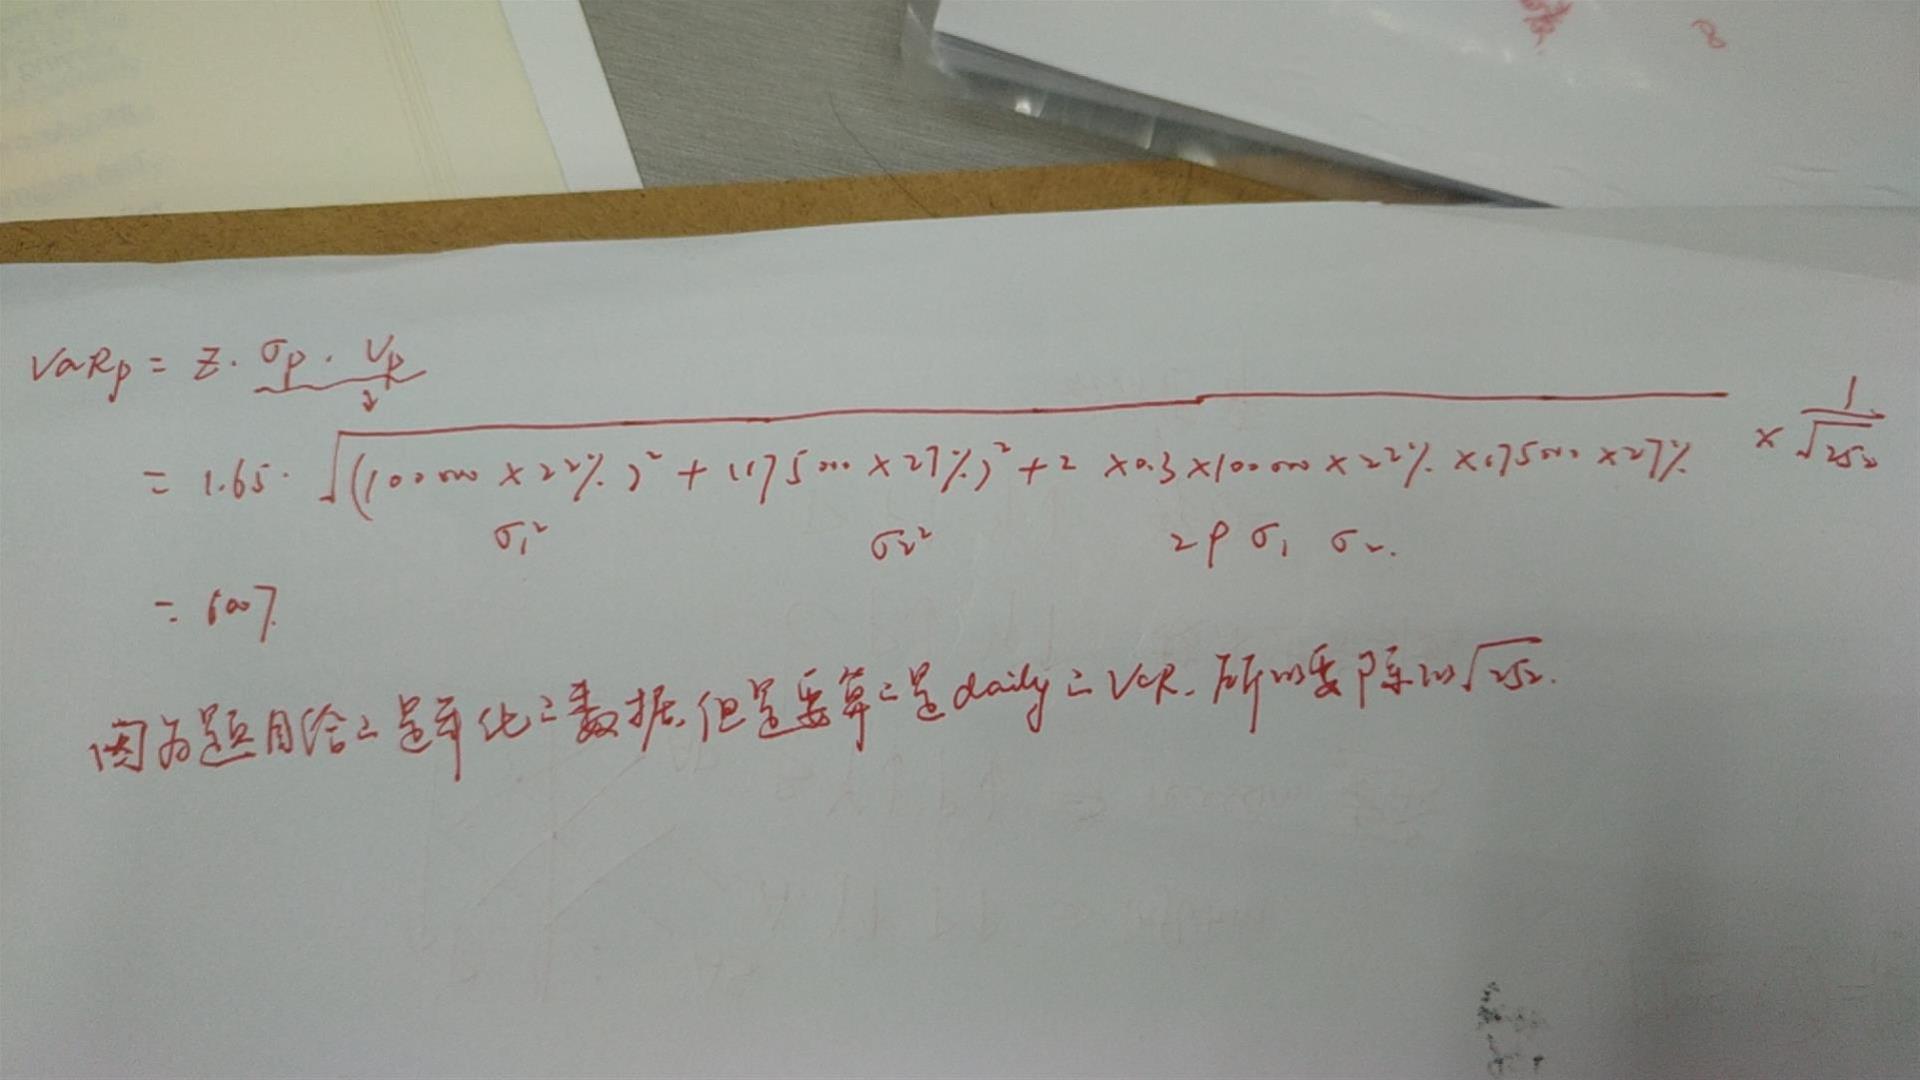 VaRp = Z · σp · Vp
= 1.65 · √(100000 × 22%)² + (175000 × 27%)² + 2 × 0.3 × 100000 × 22% × 175000 × 27% × 1/√252
σ₁² σ₂² 2ρ σ₁ σ₂.
= 6007
因为题目给的是年化的数据,但是要算的是daily的VaR.所以要除以√252.